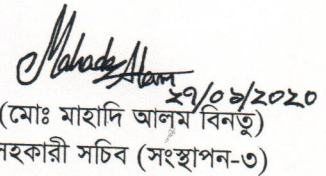 Mahadi Alam
২৭/০৬/২০২০
(মোঃ মাহাদি আলম বিনতু)
সহকারী সচিব (সংস্থাপন-৩)